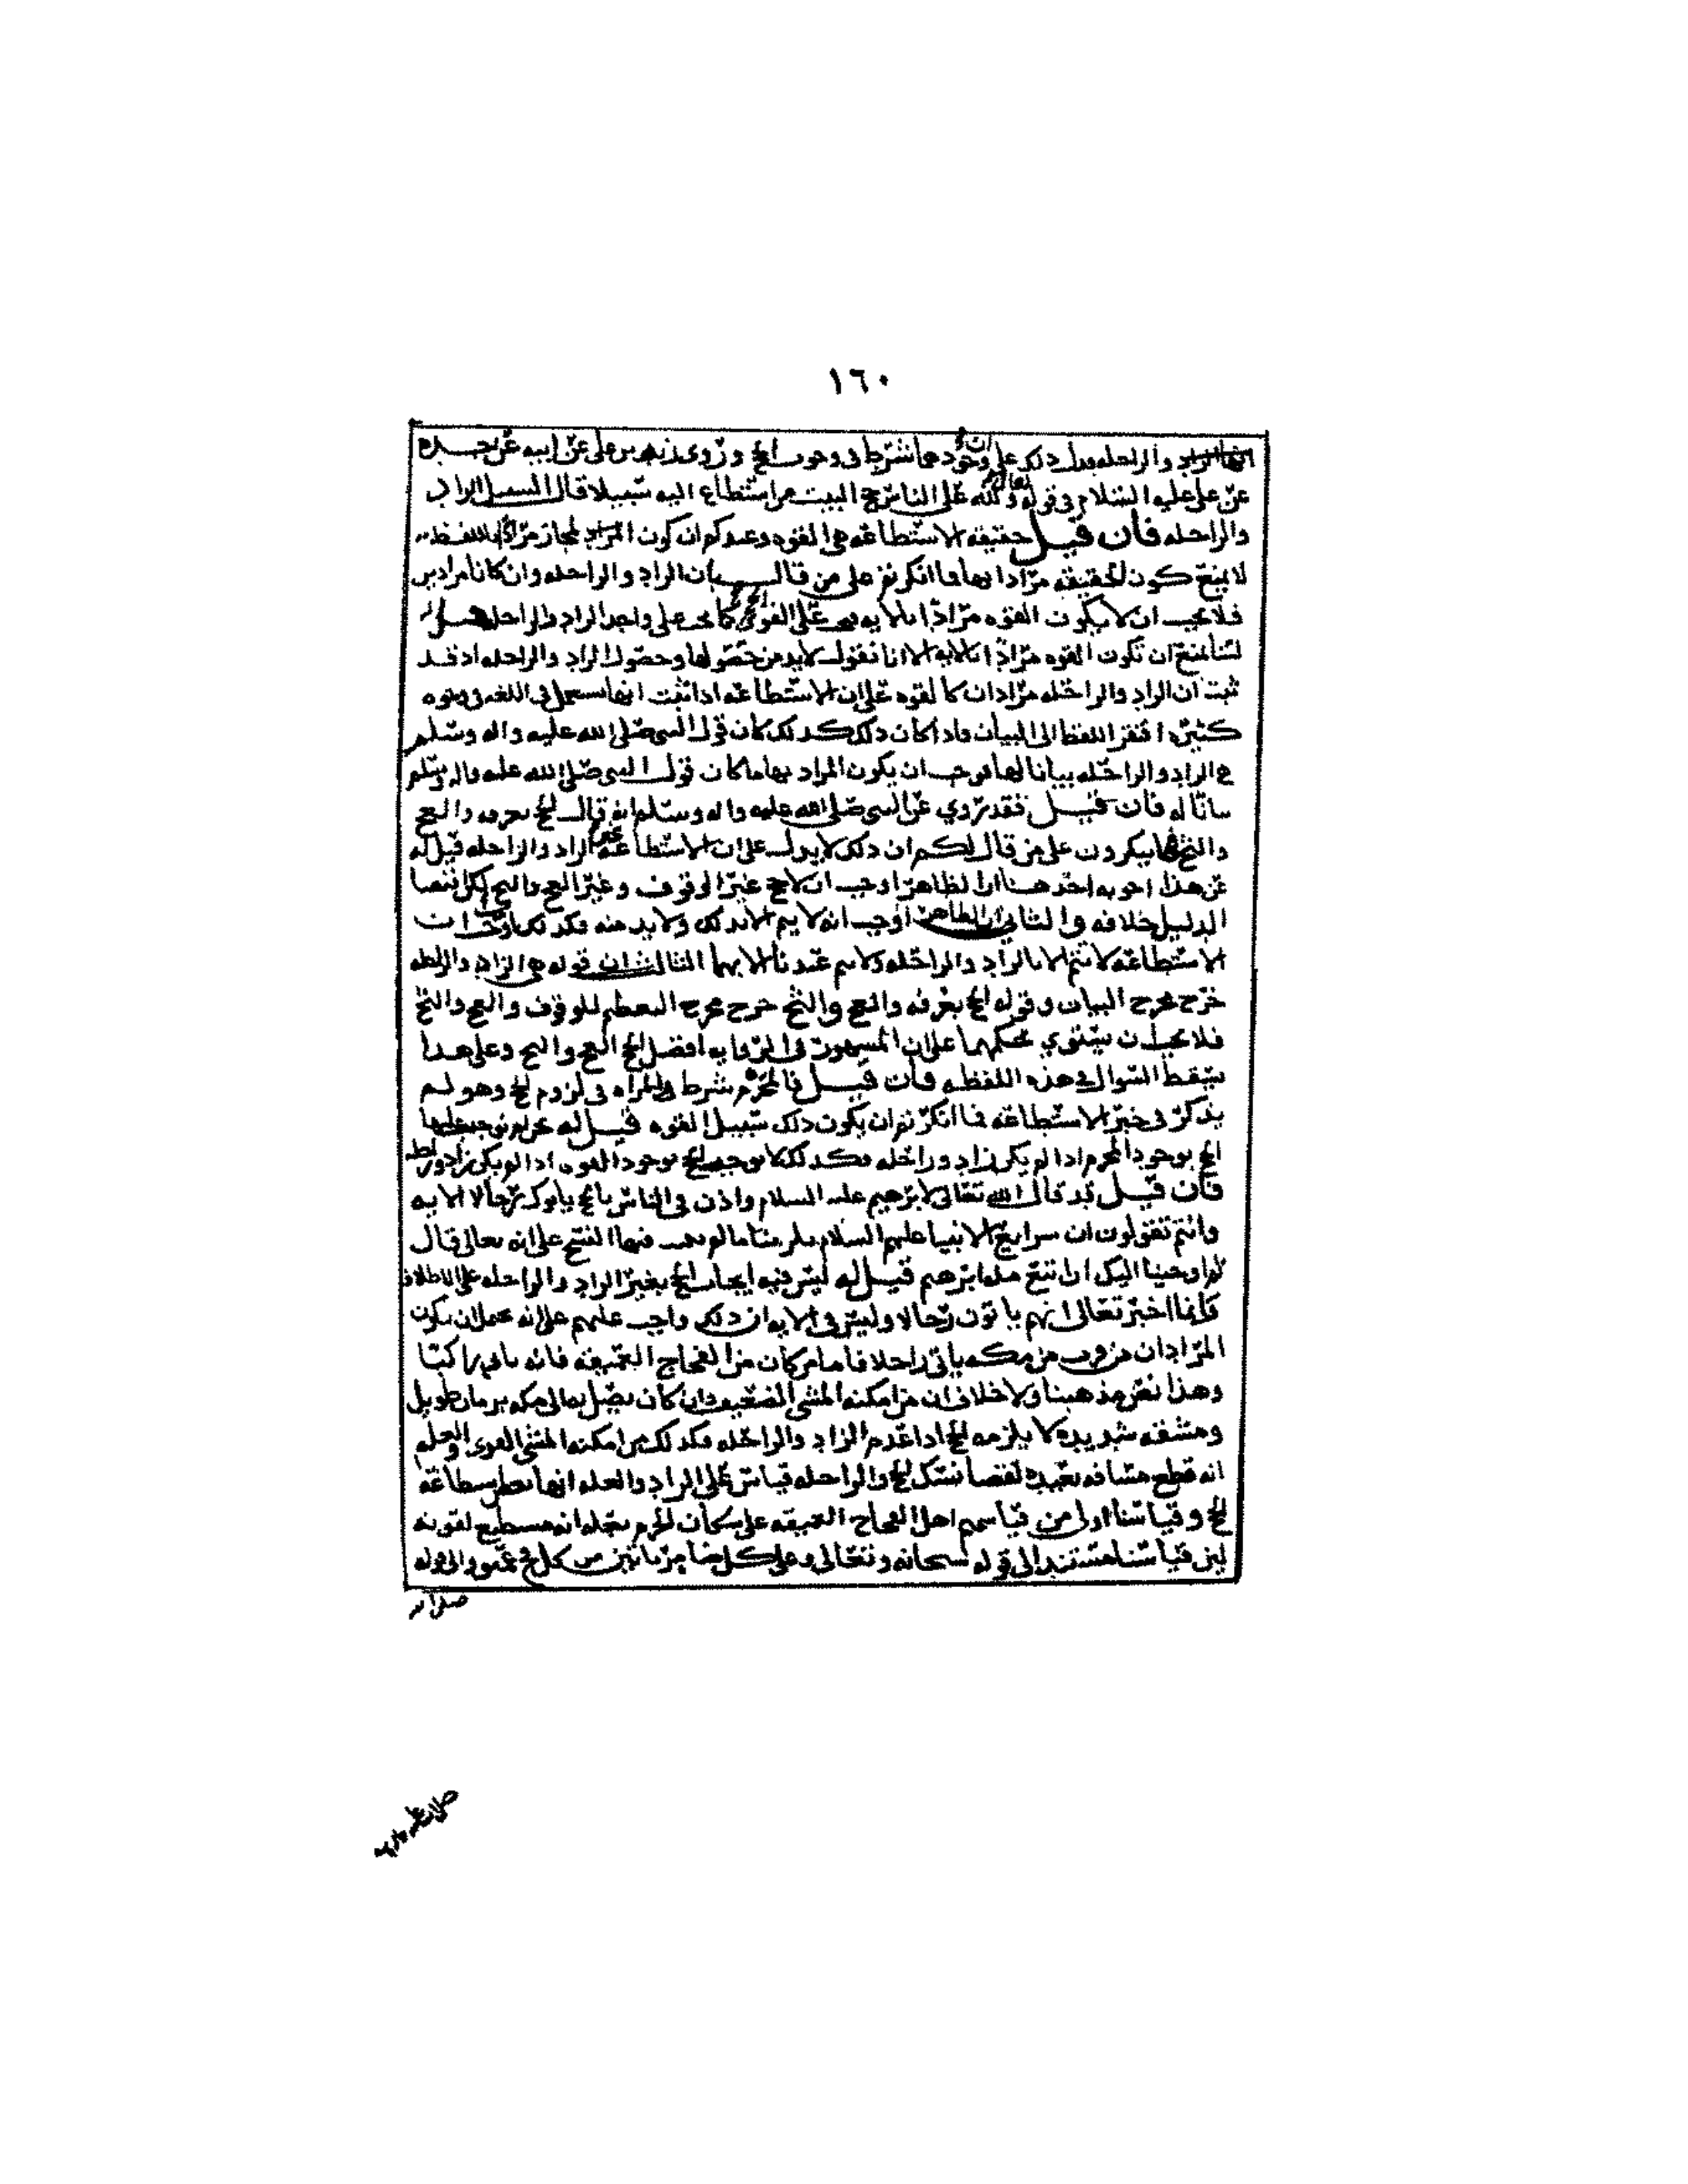 ١٦٠
انها الزاد والراحله فدل ذلك على ان وجودهما شرط فى وجوب الحج وروى زيد بن على عن ابيه عن جده
عن على عليه السلام فى قوله تعالى ولله على الناس حج البيت من استطاع اليه سبيلا قال السبيل الزاد
والراحله فان قيل حقيقه الاستطاعه هى القوه وعندكم ان كون المجاز مرادا باللفظ
لا يمنع كون الحقيقه مرادا بها فما انكرتم على من قال بان الزاد والراحله وان كانا مرادين
فلا يجب ان لا يكون القوه مرادا بالايه فيجب على القوى كما يجب على واجد الزاد والراحله قيل له
لسنا نمنع ان تكون القوه مراد بالايه الا انا نقول لابد من حصولها وحصول الزاد والراحله اذ قد
ثبت ان الزاد والراحله مرادان كالقوه على ان الاستطاعه اذا ثبت انها تستعمل فى اللغه فى وجوه
كثيره افتقر اللفظ الى البيان واذا كان ذلك كذلك كان قول النبى صلى الله عليه واله وسلم
هى الزاد والراحله بيانا لها فوجب ان يكون المراد بها ما كان قول النبى صلى الله عليه واله وسلم
بيانا له فان قيل فقد روي عن النبى صلى الله عليه واله وسلم انه قال الحج بعرفه والعج
والثج فما ينكرون على من قال لكم ان ذلك لا يدل على ان الاستطاعه غير الزاد والراحله قيل له
عن هذا اجوبه احدها ان الظاهر اوجب ان لا حج غير الوقوف وغير العج والثج لكن اقتضا
الدليل خلافه والثانى ان الظاهر اوجب انه لا يتم الا بذلك ولا بد منه فكذلك اوجب ان
الاستطاعه لا تتم الا بالزاد والراحله ولا تتم عندنا الا بهما الثالث ان قوله هى الزاد والراحله
خرج مخرج البيان وقوله الحج بعرفه والعج والثج خرج مخرج التعظيم للوقوف والعج والثج
فلا يجب ان يستوي حكمهما على ان المشهور فى الروايه افضل الحج العج والثج وعلى هذا
يسقط السوال فى هذه اللفظه فان قيل فالمحرم شرط فى المراه فى لزوم الحج وهو لم
يذكر فى خبر الاستطاعه فما انكرتم ان يكون ذلك سبيل القوه قيل له المحرم لا يوجب عليها
الحج بوجود المحرم اذا لم يكن زاد وراحله فكذلك لا يوجب الحج بوجود القوه اذا لم يكن زاد وراحله
فان قيل قد قال الله تعالى لابرهيم عليه السلام واذن فى الناس بالحج ياتوك رجالا الايه
وانتم تقولون ان شرايع الانبيا عليهم السلام يلزمنا ما لم يثبت فيها النسخ على انه تعالى قال
ثم اوحينا اليك ان اتبع مله ابرهيم قيل له ليس فيه ايجاب الحج بغير الزاد والراحله على الاطلاق
وانما اخبر تعالى انهم ياتون رجالا وليس فى الايه ان ذلك واجب عليهم على انه يحتمل ان يكون
المراد ان من قرب من مكه ياتى راجلا فاما من كان من الفجاج العميقه فانه ياتى راكبا
وهذا نص مذهبنا ولا خلاف ان من امكنه المشى الضعيف وان كان يصل به الى مكه بزمان طويل
ومشقه شديده لا يلزمه الحج اذا عدم الزاد والراحله فكذلك من امكنه المشى القوى والعله
انه قطع مسافه بعيده لقضا نسك الحج والراحله قياس على الزاد والعله انها تحصل استطاعه
الحج وقياسنا اولى من قياسهم اهل الفجاج العميقه على سكان الحرم بعله انه مستطيع لقوته
لان قياسنا مستند الى قوله سبحانه وتعالى وعلى كل ضامر ياتين من كل فج عميق والى قوله
صلى الله